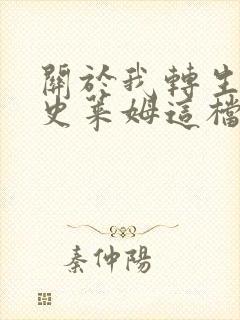 關於我轉生
史萊姆這檔
秦仲陽